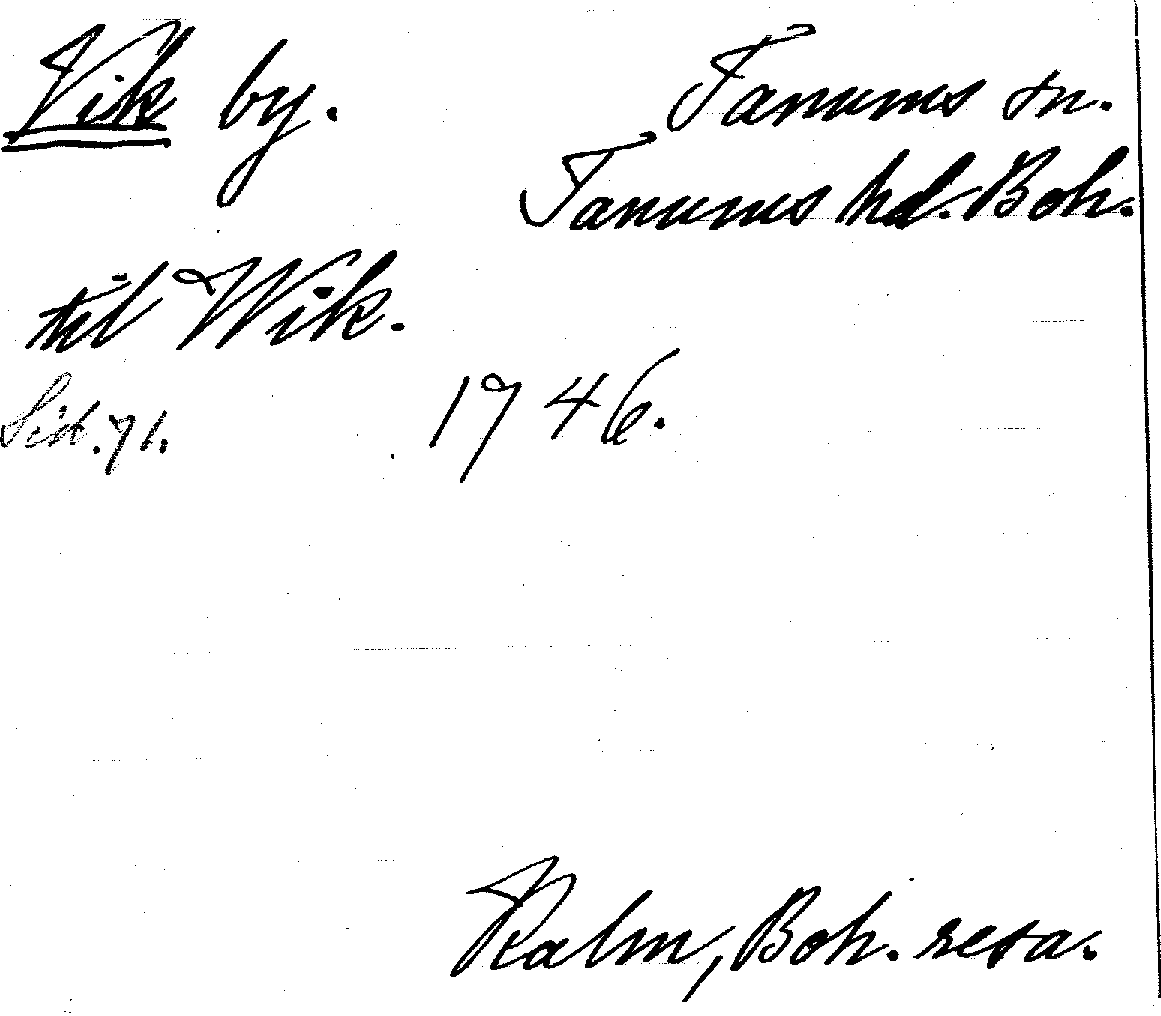 Vik by.
Tanums sn.
Tanums hd. Boh.
til Wik.
Sid. 71.
1746.
Kalm, Boh. resa.